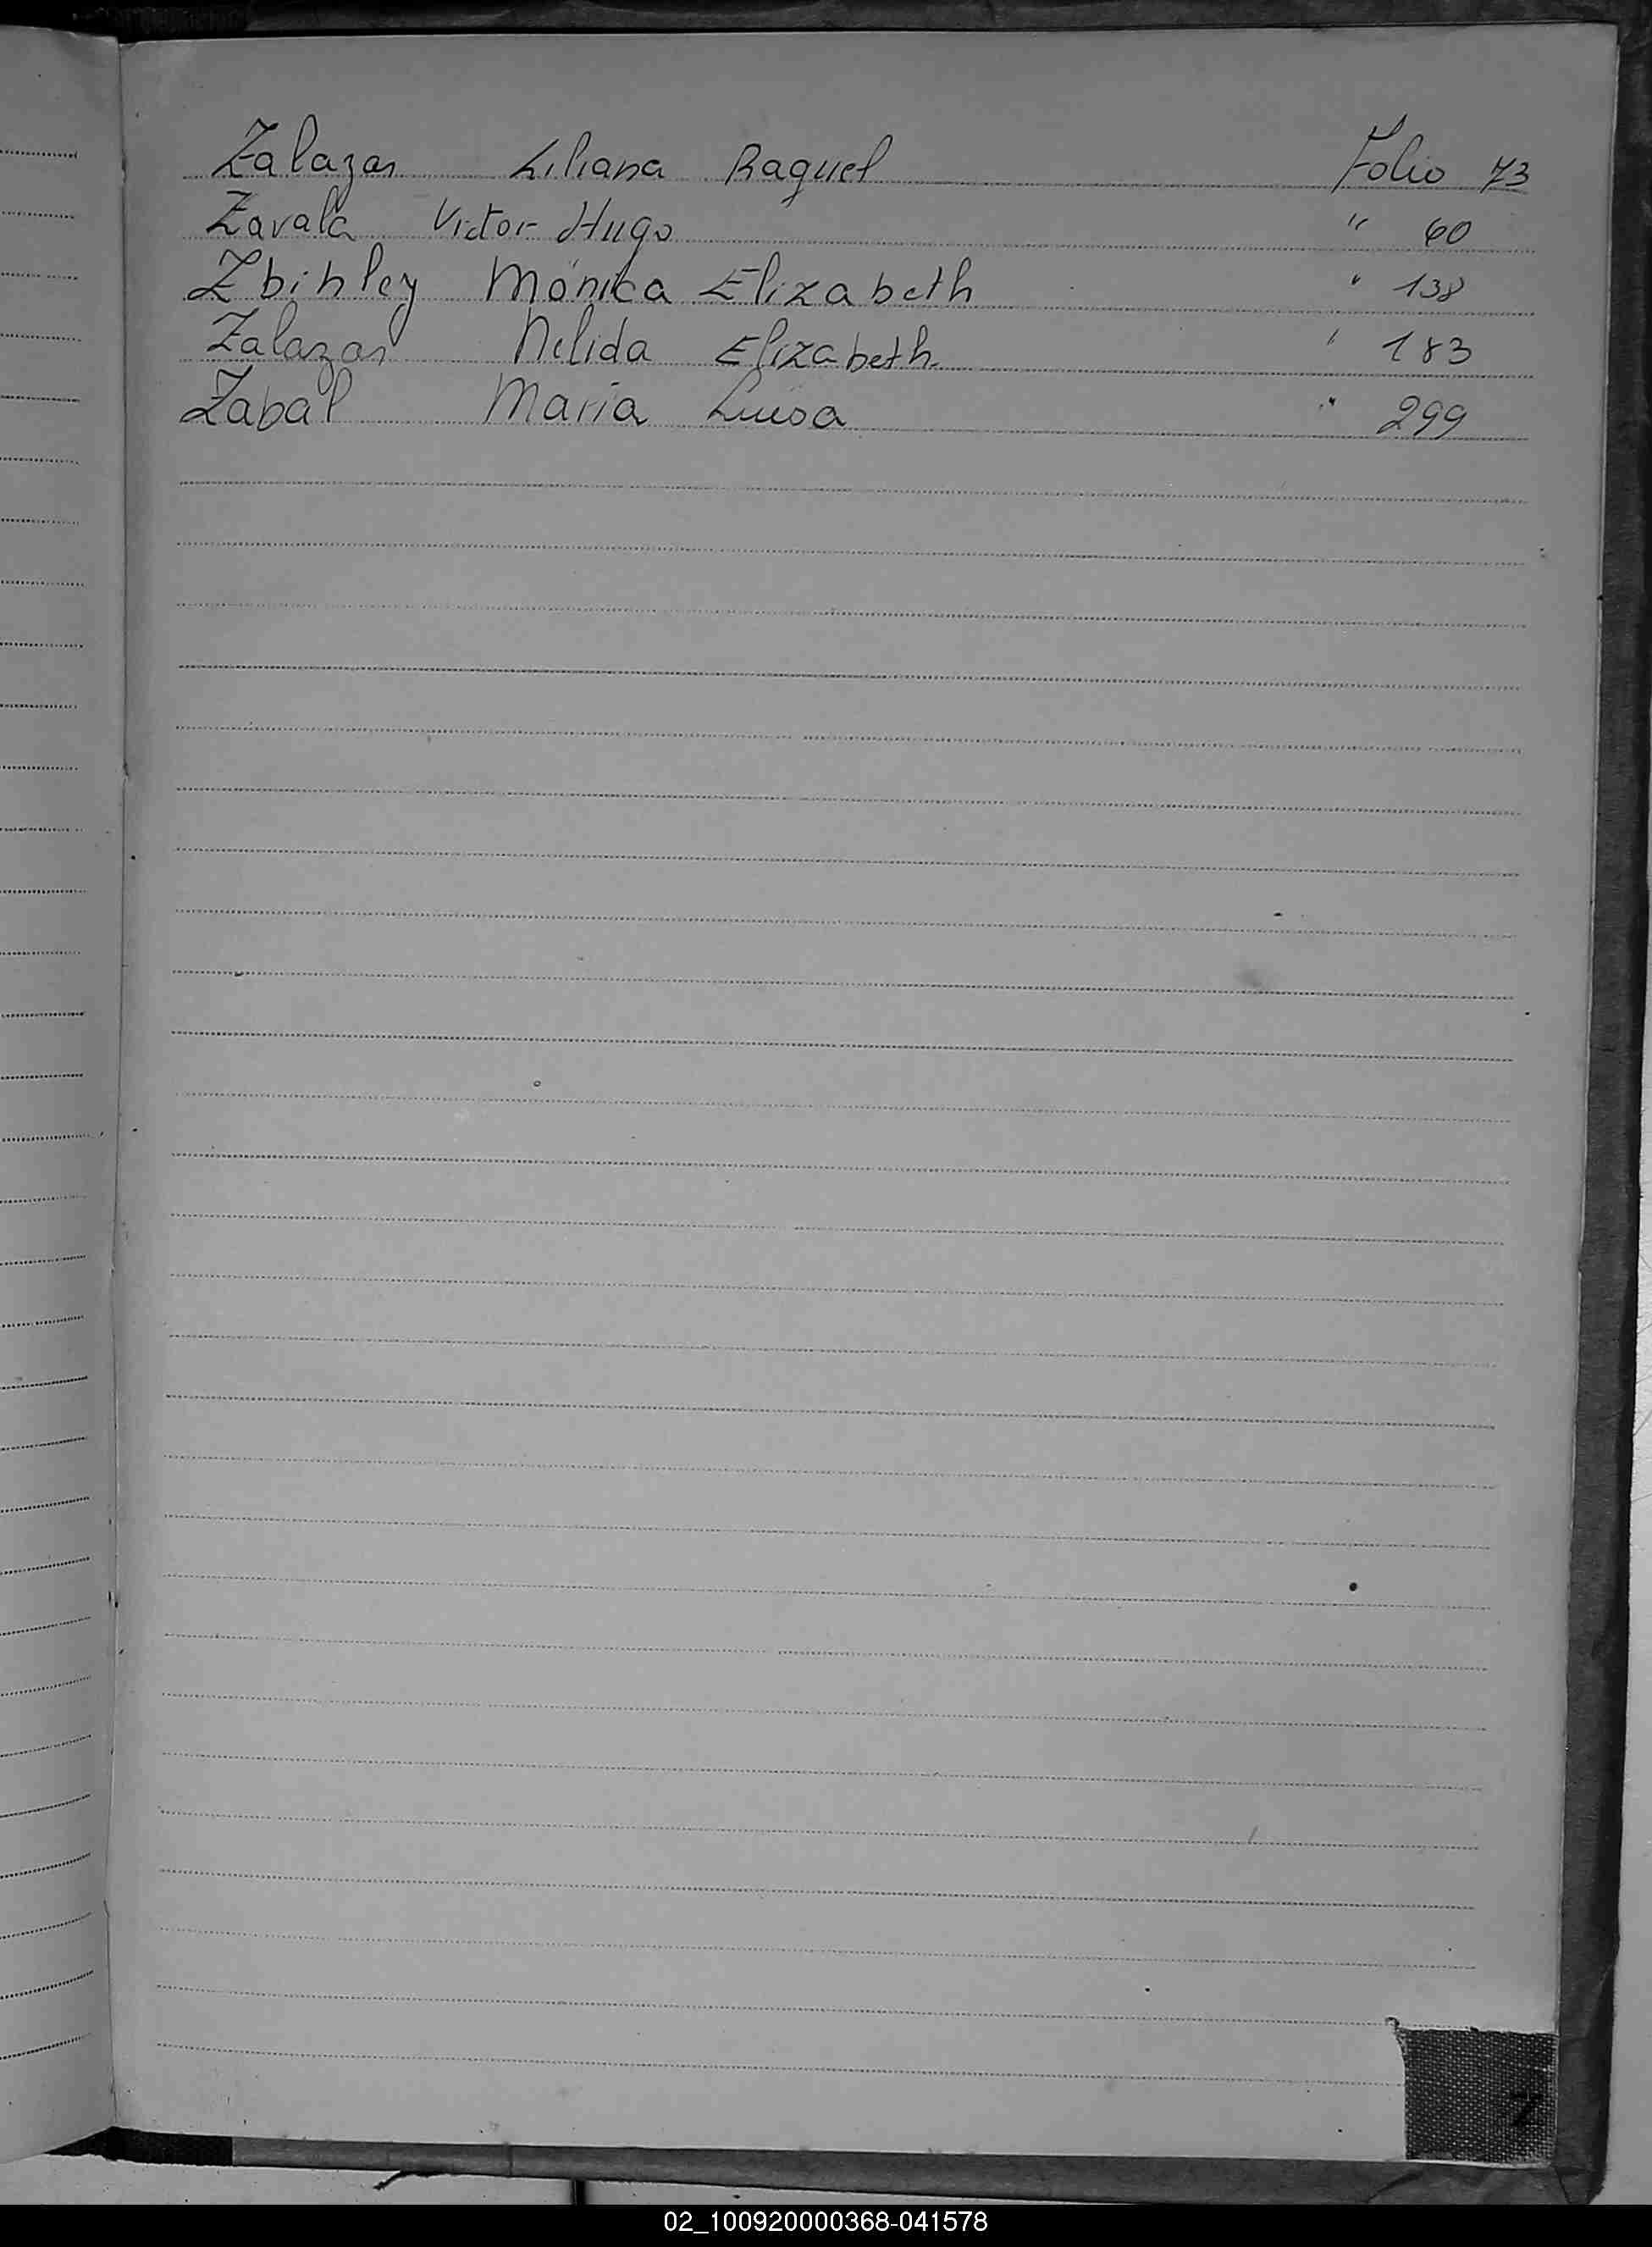 Zalazar Liliana Raquel Folio 73
Zavala Victor Hugo " 60
Zbihley Mónica Elizabeth " 138
Zalazar Nelida Elizabeth " 183
Zabal Maria Luisa " 299
Z
02_100920000368-041578